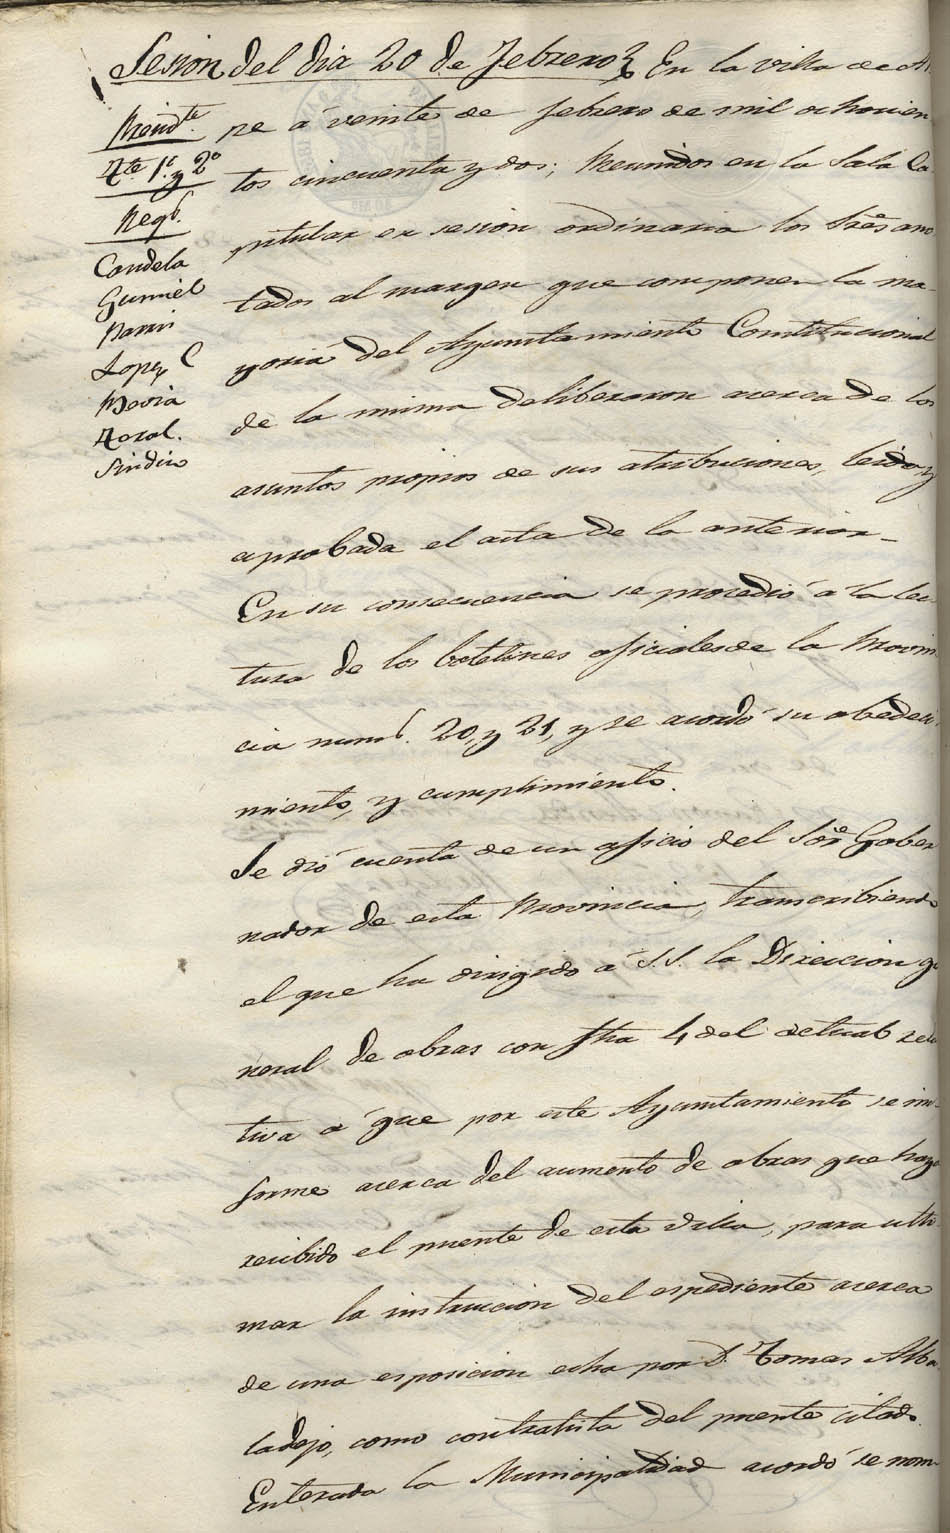 Sesion del dia 20 de Febrero} En la villa de As
Presidte.
Tte. 1º. y 2º
Regs.
Candela
Gumiel
Parri
Lopez C
Mexia
Toral.
Sindico
pe á veinte de febrero de mil ochocien
tos cincuenta y dos; Reunidos en la Sala Ca
pitular en sesion ordinaria los Sres. ano
tados al margen que componen la ma-
yoria del Ayuntamiento Constitucional
de la misma deliberaron acerca de los
asuntos propios de sus atribuciones, leida, y
aprobada el acta de la anterior-
En su consecuencia se procedió á la lec
tura de los boletines oficiales de la Provin
cia nums. 20, y 21, y se acordó su obedeci
miento, y cumplimiento.
Se dió cuenta de un oficio del Sor. Gober
nador de esta Provincia, transcribiendo
el que ha dirigido á S.S. la Direccion ge
neral de obras con fha 4 del actual rela
tiva á que por este Ayuntamiento se in-
forme acerca del aumento de obras que haya
recibido el puente de esta Villa, para ulti
mar la instruccion del espediente acerca
de una esposicion echa por D. Tomas Alba
ladejo, como contratista del puente citado.
Enterada la Municipalidad acordó se nom